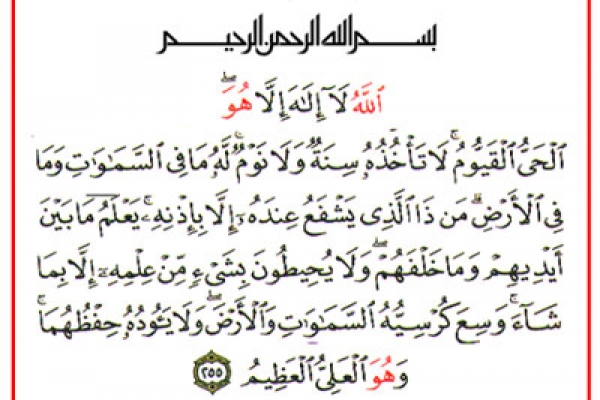 بسم الله الرحمن الرحيم
ٱللَّهُ لَآ إِلَٰهَ إِلَّا هُوَۖ
ٱلْحَىُّ ٱلْقَيُّومُۚ لَا تَأْخُذُهُۥ سِنَةٌ وَلَا نَوْمٌۚ لَّهُۥ مَا فِى ٱلسَّمَٰوَٰتِ وَمَا
فِى ٱلْأَرْضِۗ مَن ذَا ٱلَّذِى يَشْفَعُ عِندَهُۥٓ إِلَّا بِإِذْنِهِۦۚ يَعْلَمُ مَا بَيْنَ
أَيْدِيهِمْ وَمَا خَلْفَهُمْۖ وَلَا يُحِيطُونَ بِشَىْءٍ مِّنْ عِلْمِهِۦٓ إِلَّا بِمَا
شَآءَۚ وَسِعَ كُرْسِيُّهُ ٱلسَّمَٰوَٰتِ وَٱلْأَرْضَۖ وَلَا يَـُٔودُهُۥ حِفْظُهُمَاۚ
وَهُوَ ٱلْعَلِىُّ ٱلْعَظِيمُ ٢٥٥